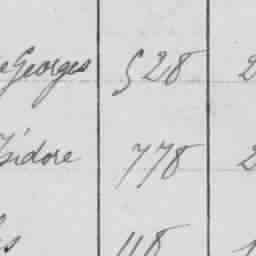 Georges 528 2
Isidore 778 2
118